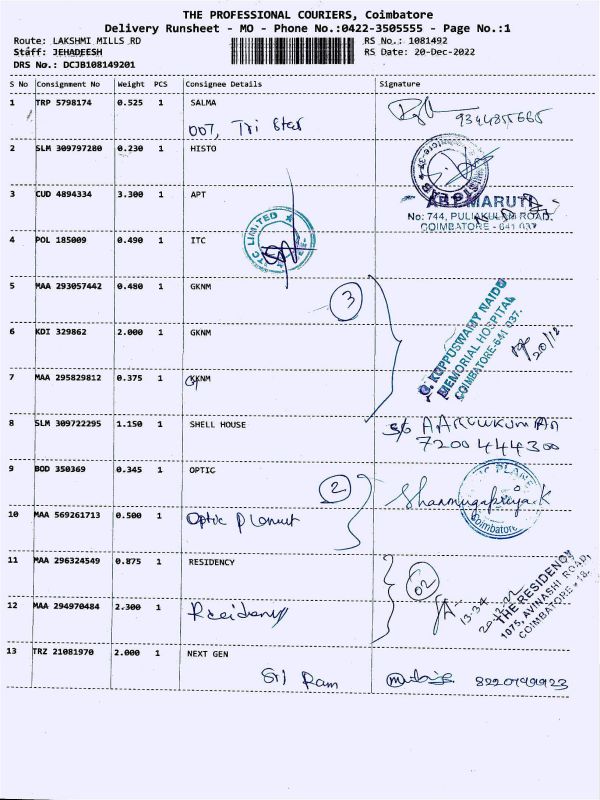 THE PROFESSIONAL COURIERS, Coimbatore
Delivery Runsheet - MO - Phone No.:0422-3505555 - Page No.:1
Route: LAKSHMI MILLS RD
RS No.: 1081492
Staff: JEHADEESH
RS Date: 20-Dec-2022
DRS No.: DCJB108149201
S No Consignment No Weight PCS Consignee Details Signature
1 TRP 5798174 0.525 1 SALMA
007, Tri Star
2 SLM 309797280 0.230 1 HISTO
3 CUD 4894334 3.300 1 APT
MARUTI
No: 744, PULIAKULAM ROAD,
COIMBATORE - 641 037
4 POL 185009 0.490 1 ITC
ITC LIMITED
5 MAA 293057442 0.480 1 GKNM
3
G. KUPPUSWAMY NAIDU
MEMORIAL HOSPITAL
COIMBATORE-641 037.
20/12
6 KDI 329862 2.000 1 GKNM
7 MAA 295829812 0.375 1 GKNM
8 SLM 309722295 1.150 1 SHELL HOUSE
7200444300
9 BOD 350369 0.345 1 OPTIC
2
Shanmugapriya K
Coimbatore
10 MAA 569261713 0.500 1 Optic Planet
11 MAA 296324549 0.875 1 RESIDENCY
02
THE RESIDENCY
1075, AVINASHI ROAD,
COIMBATORE - 18.
12 MAA 294970484 2.300 1 Residency
13 TRZ 21081970 2.000 1 NEXT GEN
Sri Ram